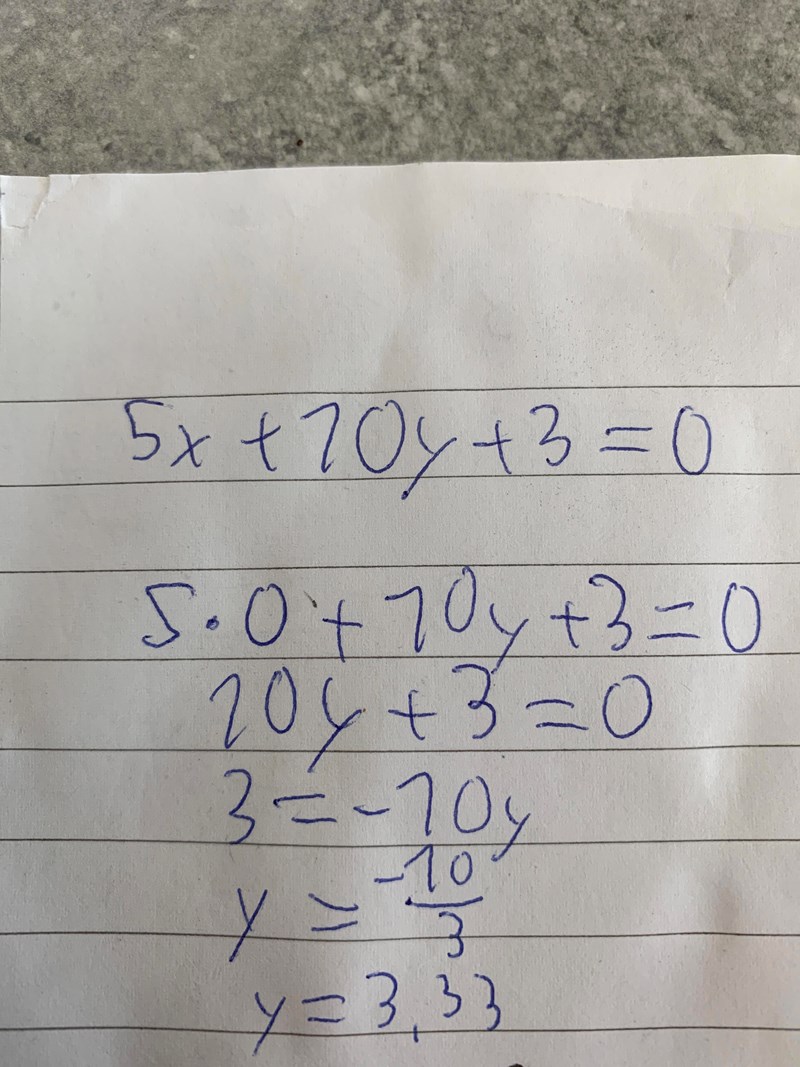 5x + 10y + 3 = 0
5 · 0 + 10y + 3 = 0
10y + 3 = 0
3 = -10y
y = -10/3
y = 3,33